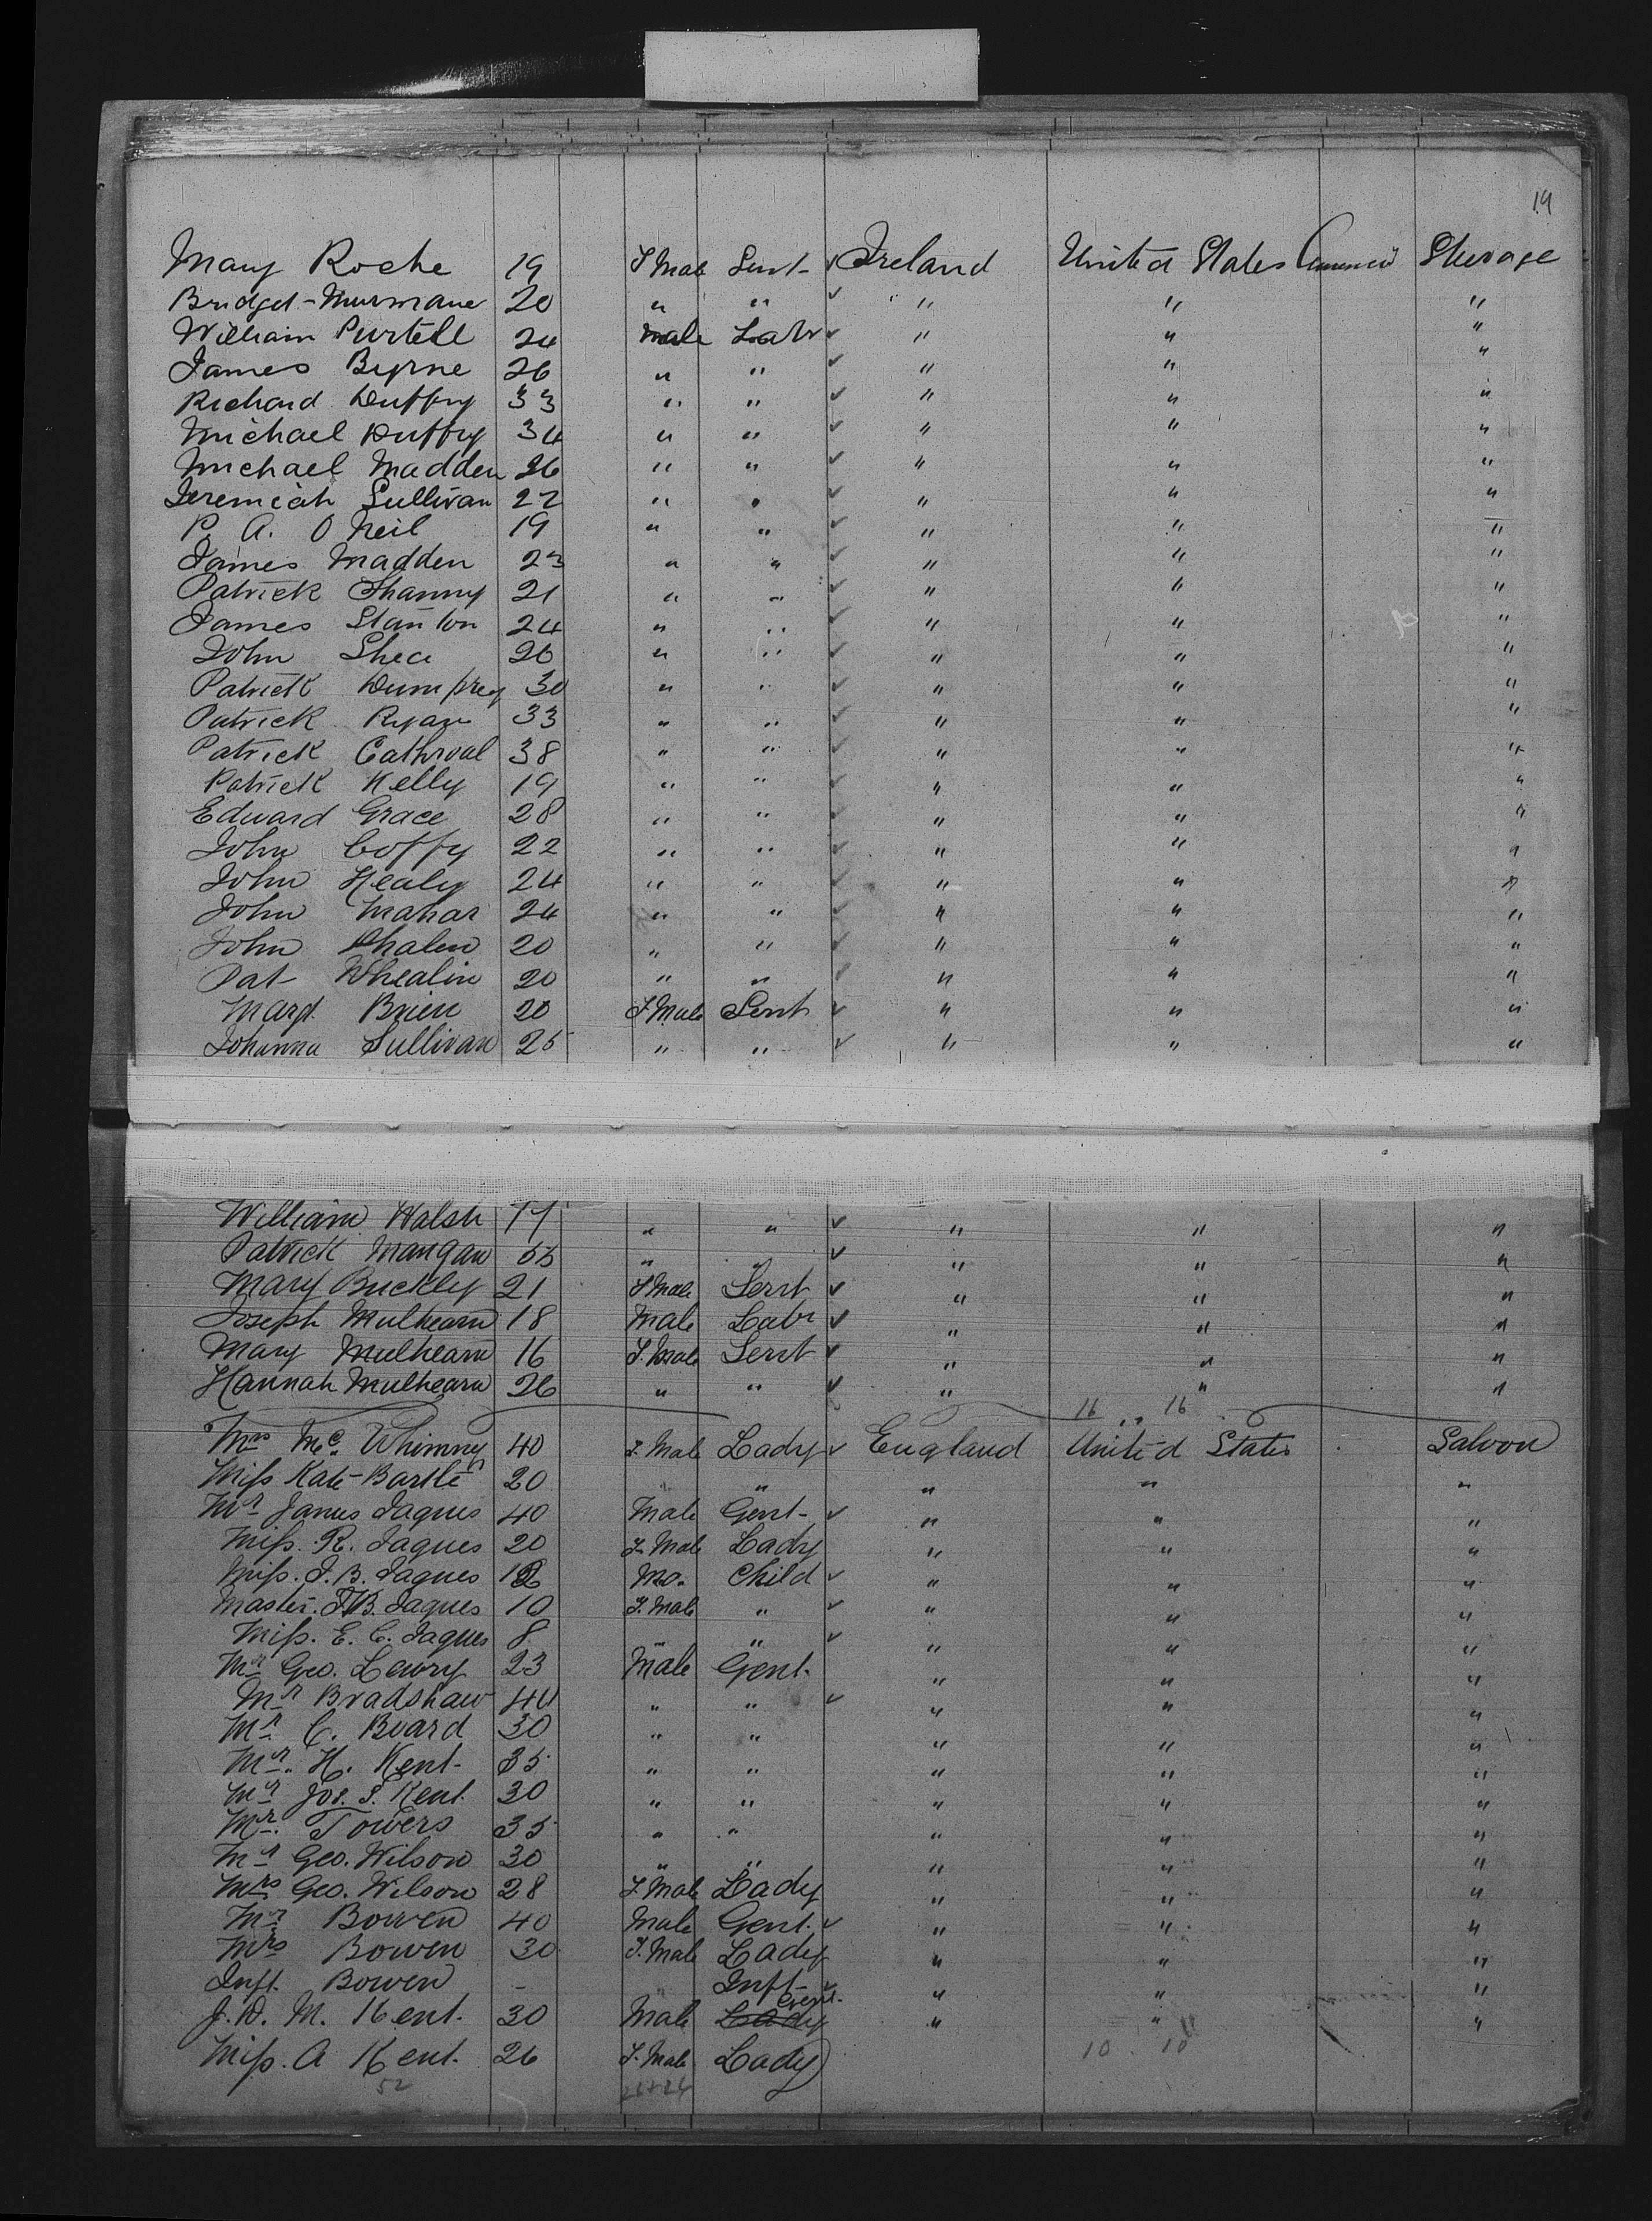 19
Mary Roche 19 F Male Servt ✓ Ireland United States America Steerage
Bridget Murmane 20 " " ✓ " " "
William Purtell 24 Male Labr ✓ " " "
James Byrne 26 " " ✓ " " "
Richard Duffy 33 " " ✓ " " "
Michael Duffy 34 " " ✓ " " "
Michael Madden 26 " " ✓ " " "
Jeremiah Sullivan 22 " " ✓ " " "
P. A. O Neil 19 " " ✓ " " "
James Madden 23 " " ✓ " " "
Patrick Shanny 21 " " ✓ " " "
James Stanton 24 " " ✓ " " "
John Shea 26 " " ✓ " " "
Patrick Dumprey 30 " " ✓ " " "
Patrick Ryan 33 " " ✓ " " "
Patrick Cathroal 38 " " ✓ " " "
Patrick Kelly 19 " " ✓ " " "
Edward Grace 28 " " ✓ " " "
John Coffy 22 " " ✓ " " "
John Healy 24 " " ✓ " " "
John Mahar 24 " " ✓ " " "
John Phalen 20 " " ✓ " " "
Pat Whealin 20 " " ✓ " " "
Margt. Brien 20 F Male Servt ✓ " " "
Johanna Sullivan 25 " " ✓ " " "
William Walsh 17 " " ✓ " " "
Patrick Mangan 55 " " ✓ " " "
Mary Buckley 21 F Male Servt ✓ " " "
Joseph Mulhearn 18 Male Labr ✓ " " "
Mary Mulhearn 16 F. Male Servt ✓ " " "
Hannah Mulhearn 26 " " ✓ " " "
16 " 16
Mrs Mc. Whimny 40 F. Male Lady ✓ England United States Saloon
Miss Kate Bartle 20 " " " " "
Mr James Jaques 40 Male Gent ✓ " " "
Miss. R. Jaques 20 F Male Lady " " "
Miss. J. B. Jaques Mo. Child ✓ " " "
Master. J. B. Jaques 10 F. Male " ✓ " " "
Miss. E. C. Jaques 8 " " ✓ " " "
Mr Geo. Lewry 23 Male Gent. " " "
Mr Bradshaw 40 " " ✓ " " "
Mr C. Board 30 " " " " "
Mr. H. Kent 35 " " " " "
Mr Jos. S. Kent. 30 " " " " "
Mr. Towers 35 " " " " "
Mr Geo. Wilson 30 " " " " "
Mrs Geo. Wilson 28 F. Male Lady " " "
Mr Bowen 40 Male Gent. ✓ " " "
Mrs Bowen 30 F. Male Lady " " "
Inft. Bowen - " Inft ✓ " " "
J. D. M. Kent. 30 Male Lady Gent. " " "
Miss. A Kent. 26 F. Male Lady 10 10
52 26+26